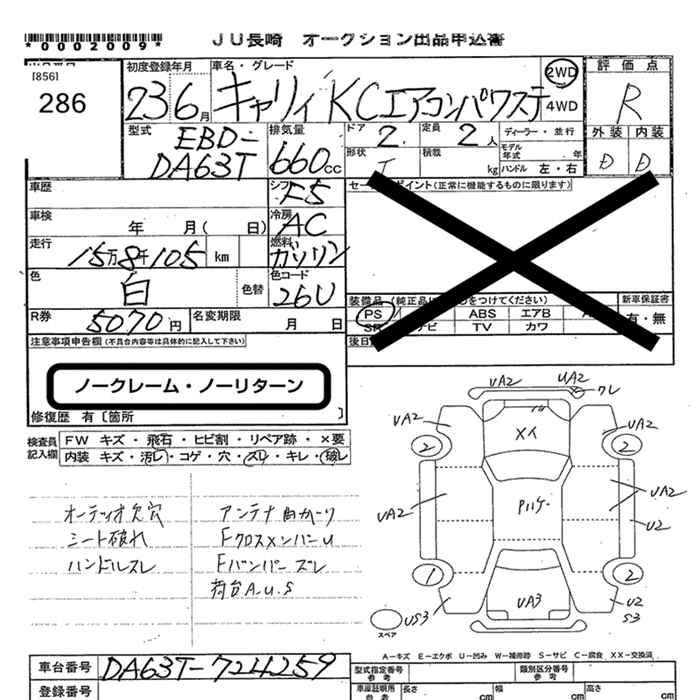 *0002009*
JU長崎 オークション出品申込書
[856]
286
初度登録年月
23 6月
車名・グレード
キャリィ KCエアコンパワステ
2WD
4WD
評価点
R
外装 内装
D D
型式
EBD-
DA63T
排気量
660cc
ドア 2
定員 2人
ディーラー・並行
モデル年式 年
形状
積載 kg
ハンドル 左・右
車歴
シフト F5
車検 年 月( 日)
冷房 AC
走行 15万8千105 km
燃料 ガソリン
色 白 色替
色コード 26U
R券 5070円
名変期限 月 日
セールスポイント(正常に機能するものに限ります)
PS
ABS エアB
TV カワ
新車保証書
有・無
注意事項申告欄(不具合内容等は具体的に記入して下さい)
ノークレーム・ノーリターン
修復歴 有〔箇所 〕
検査員記入欄
FW キズ・飛石・ヒビ割・リペア跡・×要
内装 キズ・汚レ・コゲ・穴・スレ・キレ・破レ
オーディオ欠穴
シート破れ
ハンドルスレ
アンテナ曲がり
FクロスメンバーU
Fバンパーズレ
荷台A.U.S
UA2 UA2 ワレ
UA2 メイ UA2
2 2
UA2 Pハゲ UA2
U2
1 2
US3 UA3 U2
S3
スペア
A-キズ E-エクボ U-凹み W-補修跡 S-サビ C-腐食 XX-交換済
車台番号 DA63T-724259
登録番号
型式指定番号
参考
類別区分番号
参考
車庫証明用
参考
長さ cm
幅 cm
高さ cm